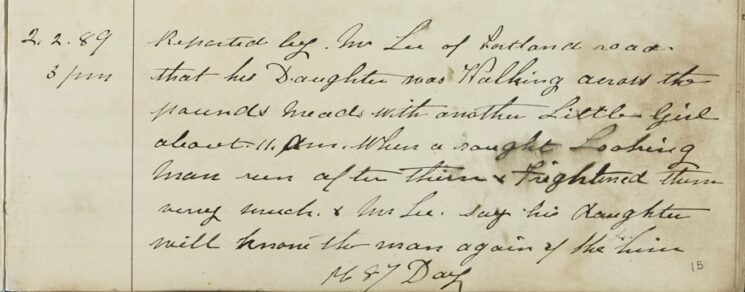 2.2.89 Reported by. Mr Lee of Portland road
3 pm that his Daughter was Walking across the
pounds Meads with another Little Girl
about 11. Am. When a rought Looking
Man run after them & Frightened them
very much. & Mr Lee. say his daughter
will know the man again if the him
PC 87 Day
15